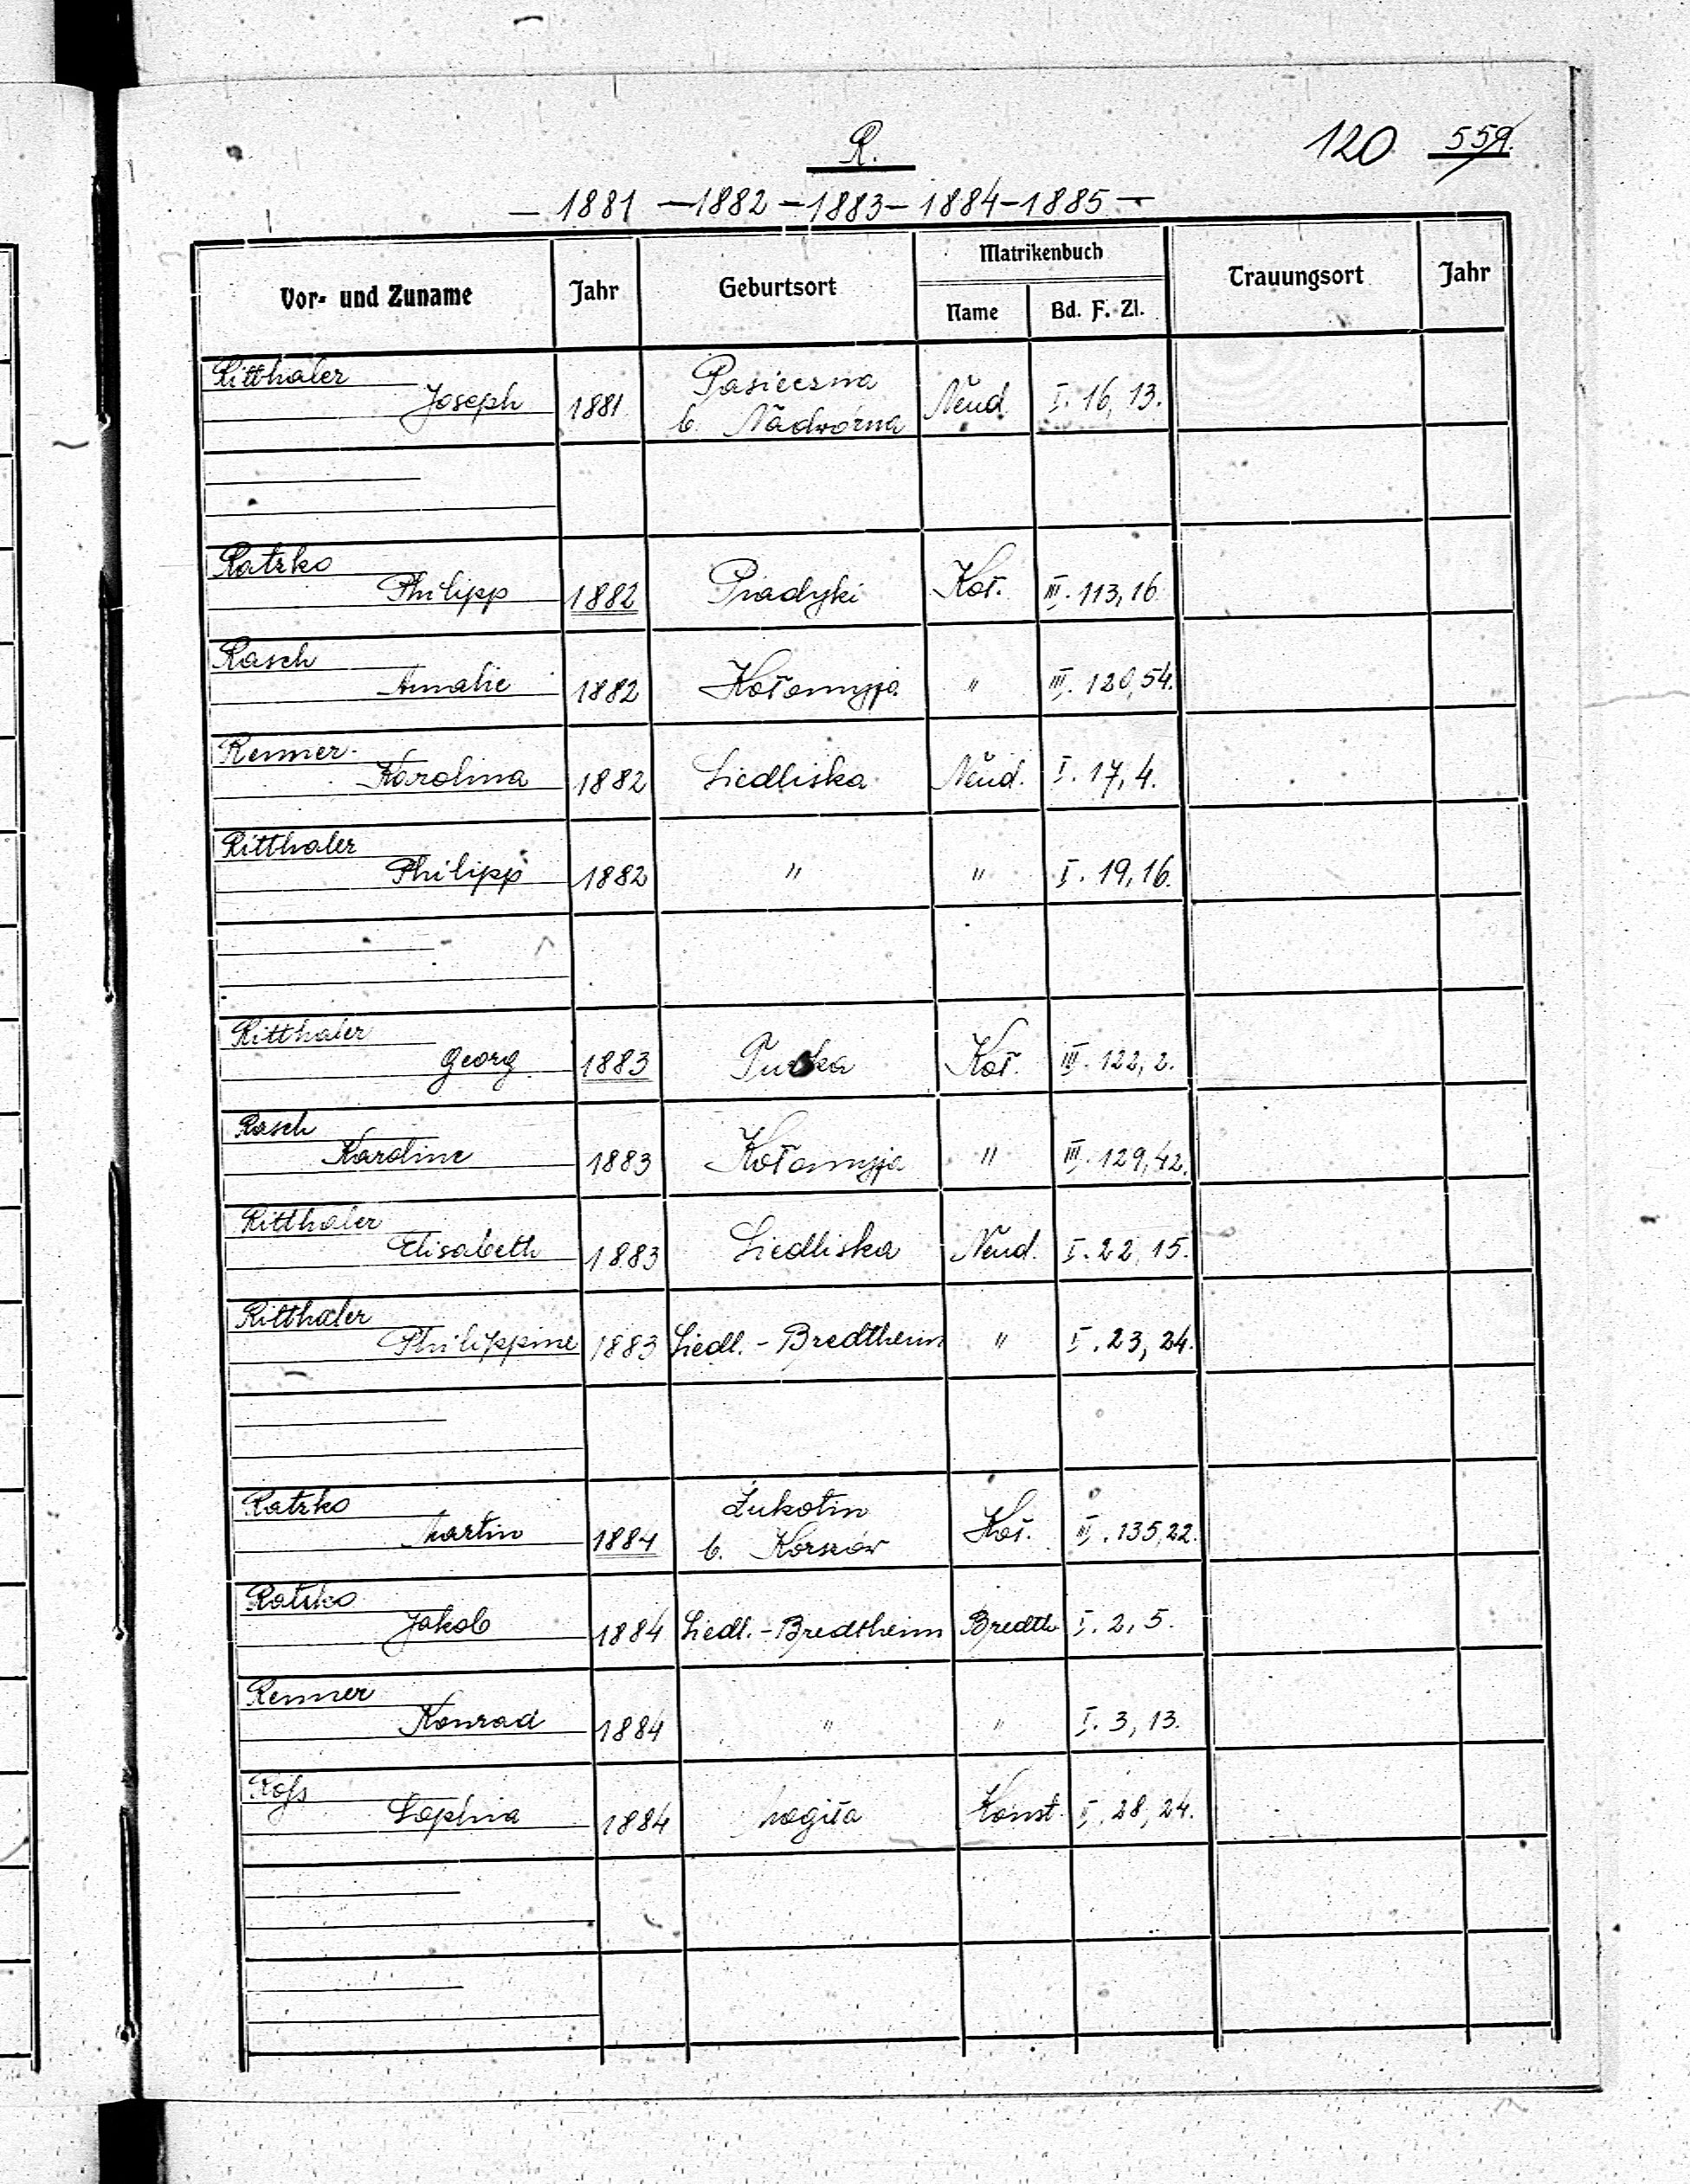 R.
120 559.
— 1881 — 1882 — 1883 — 1884 — 1885 —
Vor- und Zuname Jahr Geburtsort Matrikenbuch Trauungsort Jahr
Name Bd. F. Zl.
Ritthaler Pasieczna
Joseph 1881 b. Nadwórna Neud. I. 16, 13.
Ratzko
Philipp 1882 Piadyki Koł. III. 113, 16.
Rasch
Amalie 1882 Kołomyja " III. 120, 54.
Renner
Karolina 1882 Siedliska Neud. I. 17, 4.
Ritthaler
Philipp 1882 " " I. 19, 16.
Ritthaler
Georg 1883 Koł. III. 122, 2.
Rasch
Karoline 1883 Kołomyja " III. 129, 42.
Ritthaler
Elisabeth 1883 Siedliska Neud. I. 22, 15.
Ritthaler
Philippine 1883 Siedl. - Bredtheim " I. 23, 24.
Ratzko
Martin 1884 b. Korszów Koł. III. 135, 22.
Ratzko
Jakob 1884 Siedl. - Bredtheim Bredth. I. 2, 5.
Renner
Konrad 1884 " " I. 3, 13.
Roſs
Sophia 1884 Mogiła Konst. II. 28, 24.